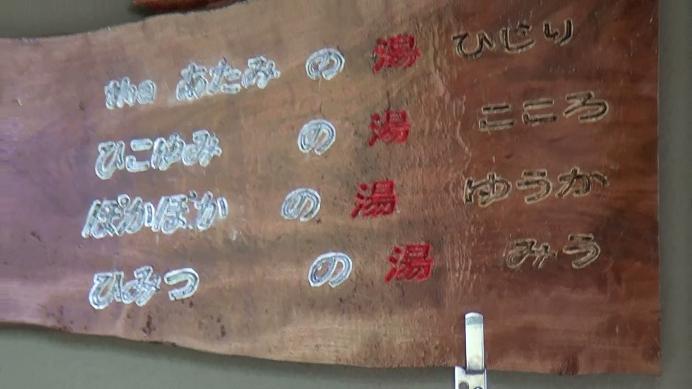 あたみの湯 ひじり
ひこゆみの湯 こころ
ぽかぽかの湯 ゆうか
ひみつの湯 みう